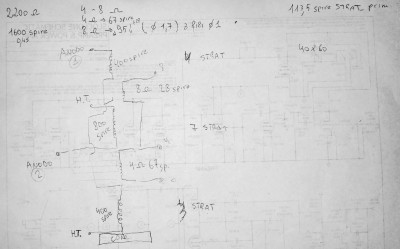 2200 Ω   4 - 8 Ω   113,5 spire STRAT. prim
4 Ω → 67 spire
1600 spire   8 Ω → 95 (Ø 1,7) 2 fili Ø 1
0,45
40 x 60
ANODO
1
400 spire   4 STRAT
8 Ω 28 spire
H.T.
800 spire   7 STRAT
ANODO
2
4 Ω 67 sp
400 spire   STRAT
H.T.